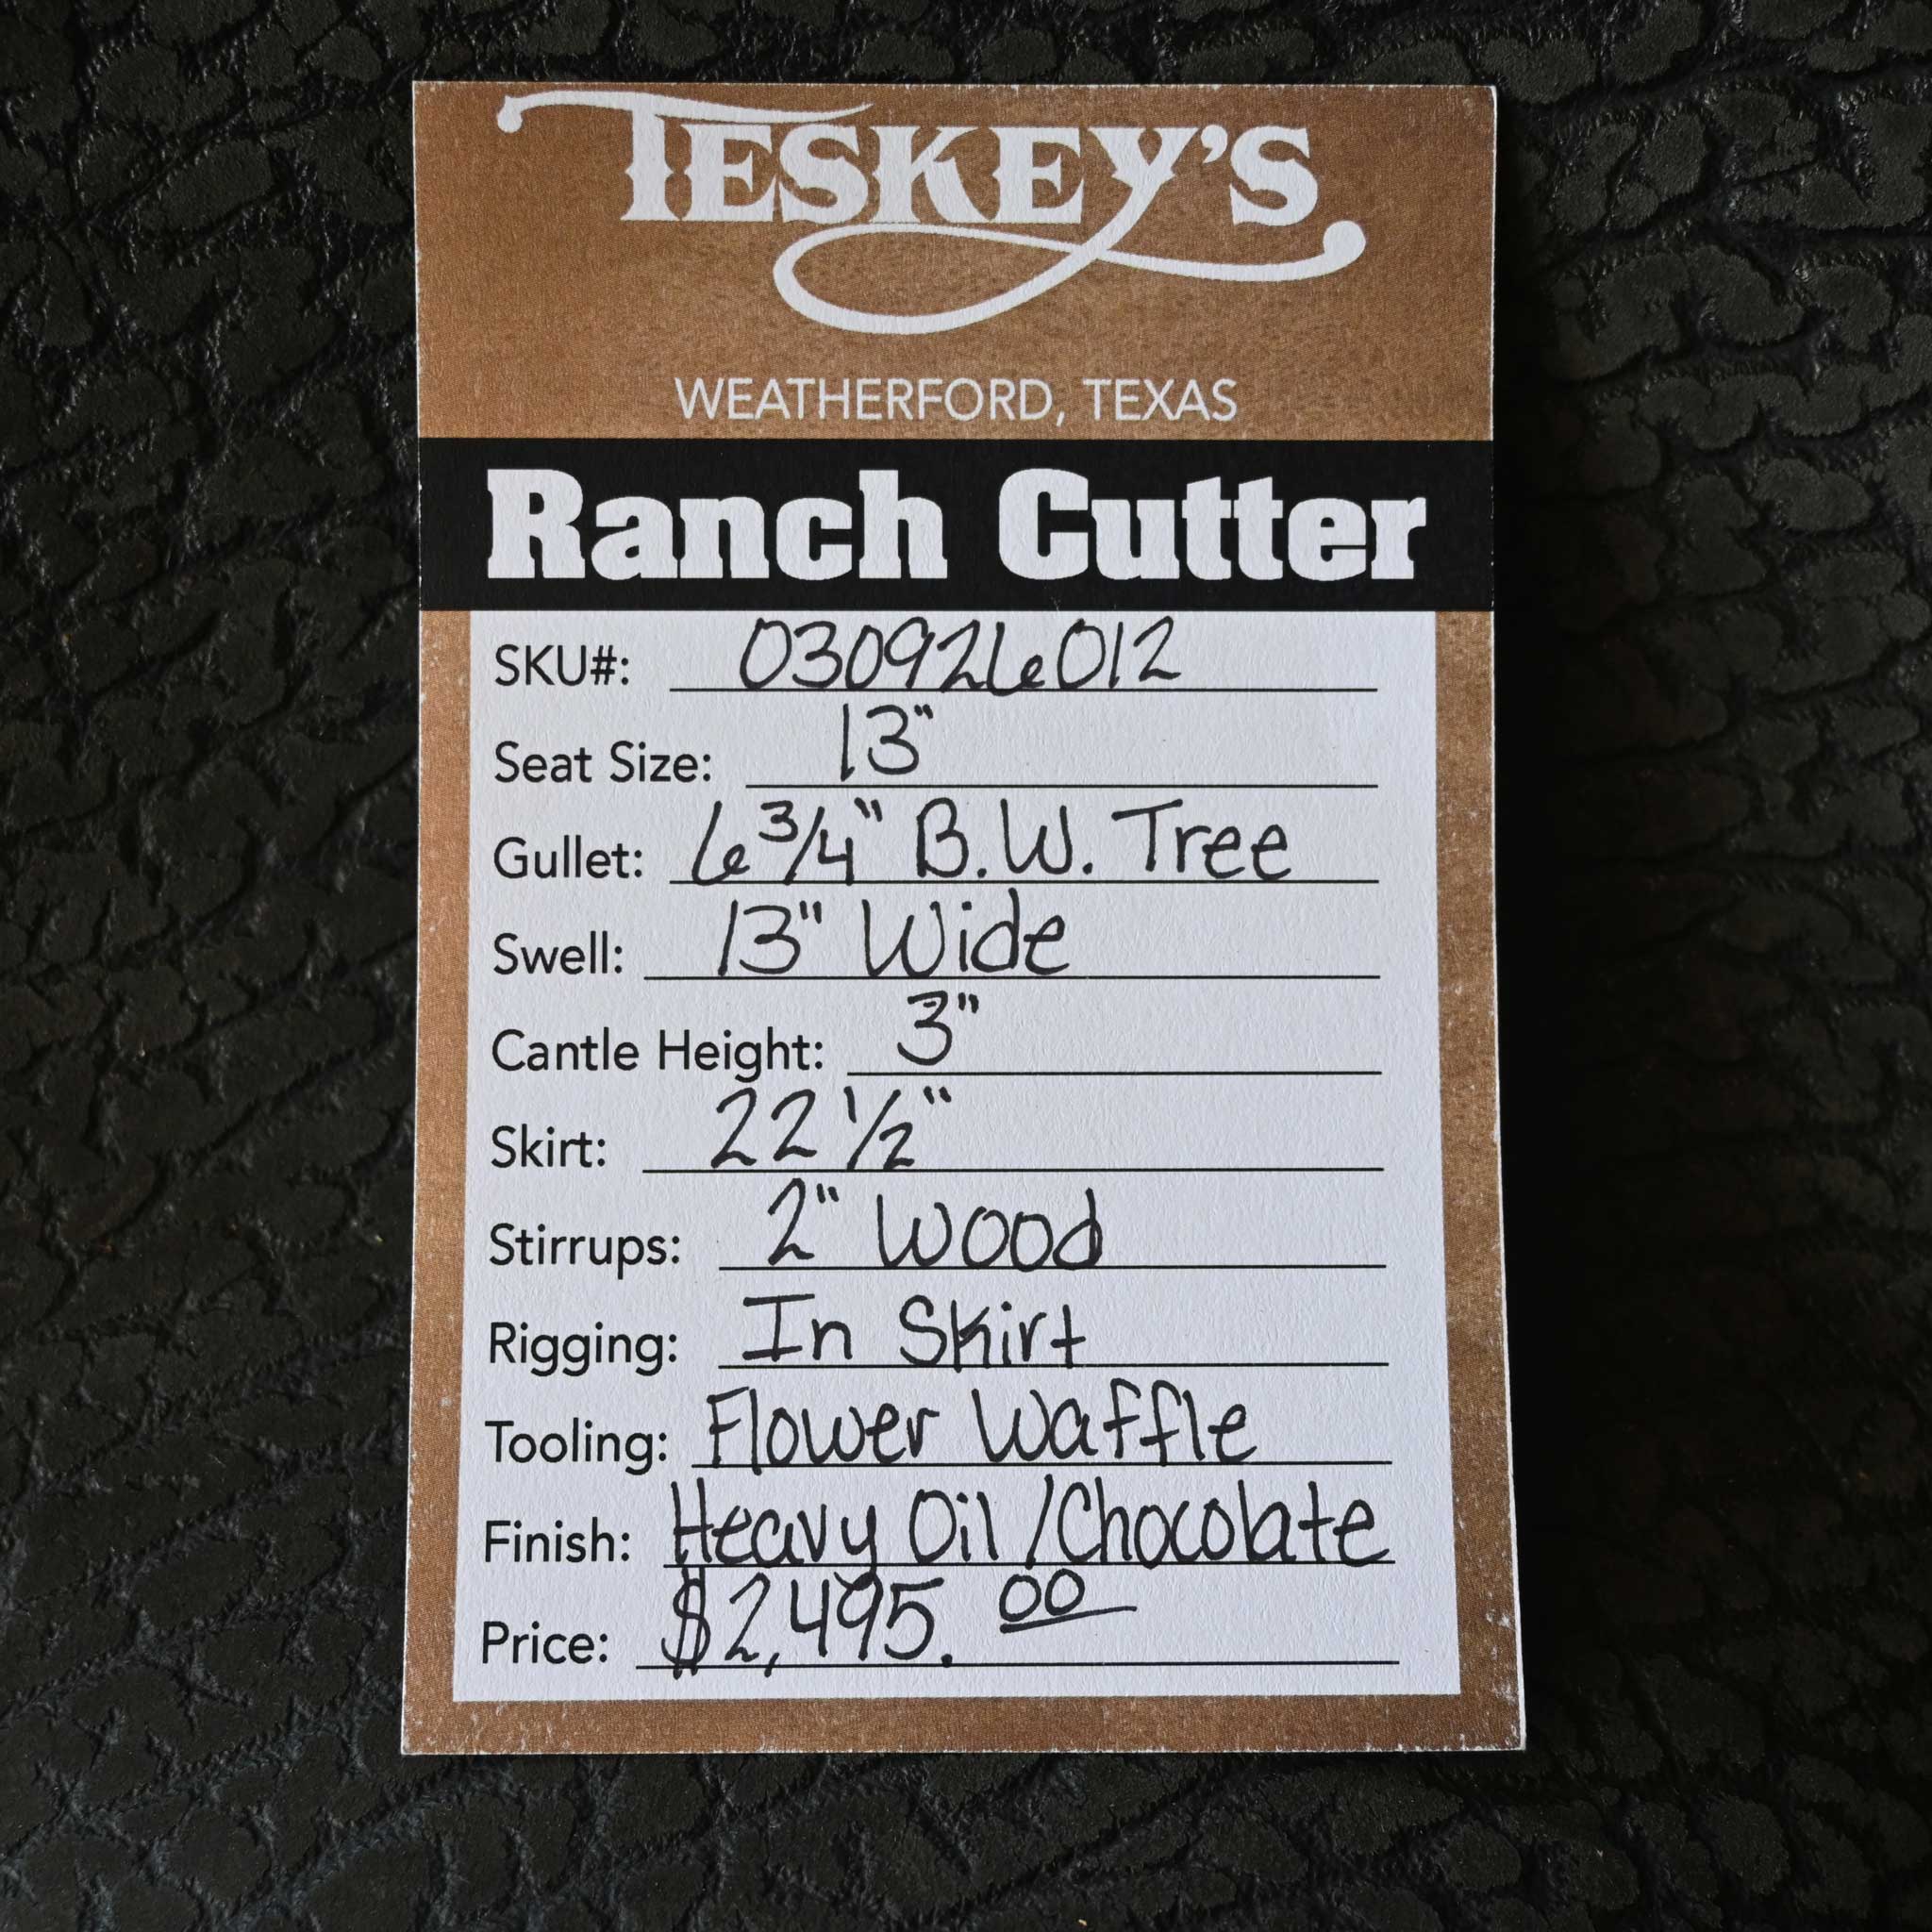 TESKEY'S
WEATHERFORD, TEXAS
Ranch Cutter
SKU#: 030926012
Seat Size: 13"
Gullet: 6 3/4" B.W. Tree
Swell: 13" Wide
Cantle Height: 3"
Skirt: 22 1/2"
Stirrups: 2" Wood
Rigging: In Skirt
Tooling: Flower Waffle
Finish: Heavy Oil/Chocolate
Price: $2,495.00